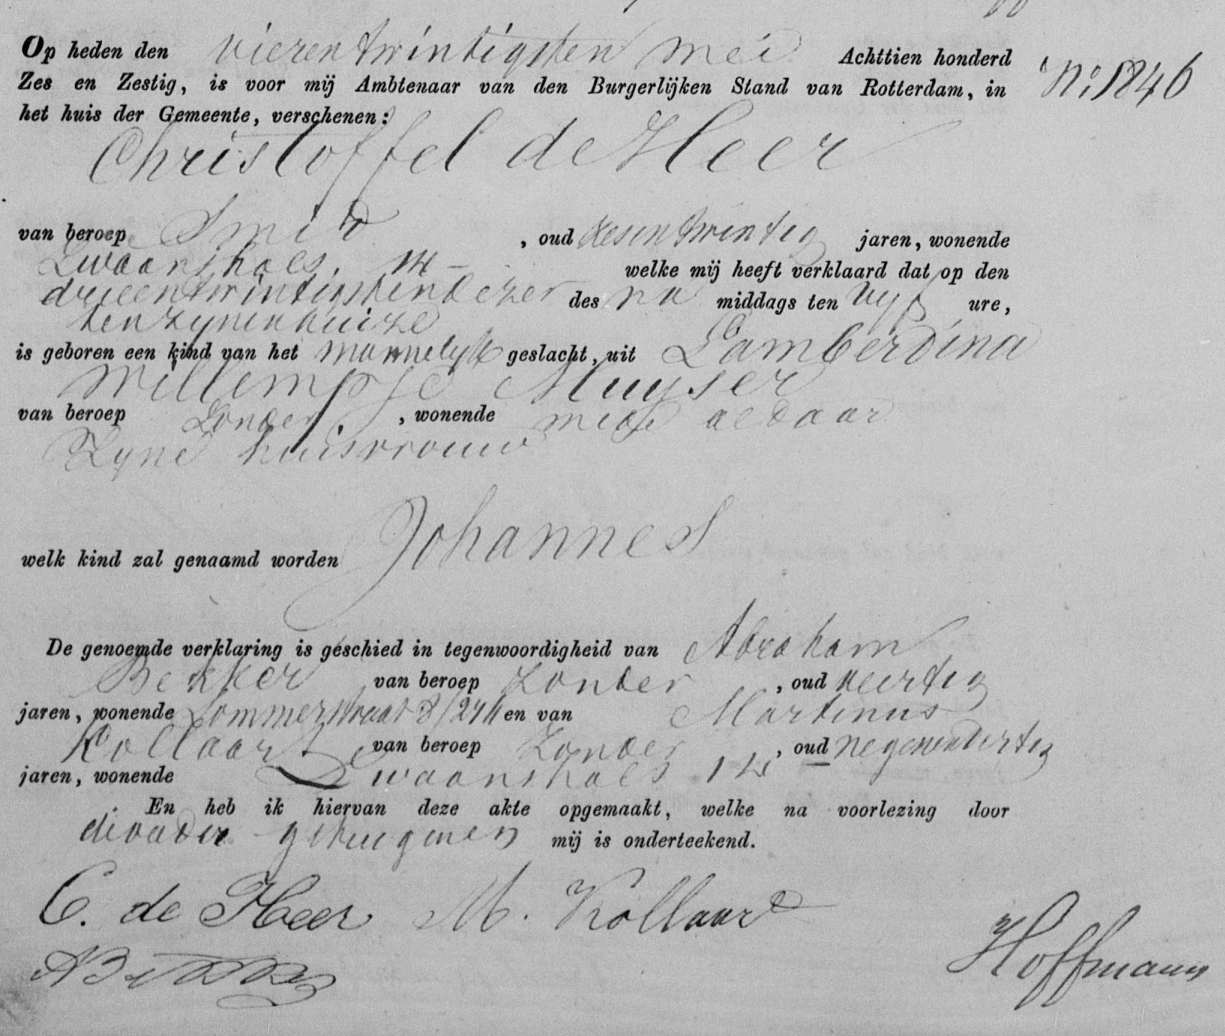 Op heden den vierentwintigsten mei Achttien honderd
Zes en Zestig, is voor mij Ambtenaar van den Burgerlijken Stand van Rotterdam, in
No 1846
het huis der Gemeente, verschenen:
Christoffel de Heer
van beroep Smid , oud zesentwintig jaren, wonende
Zwaanshals 14 welke mij heeft verklaard dat op den
drieentwintigsten dezer des na middags ten vyf ure,
ten zynen huize
is geboren een kind van het mannelyk geslacht, uit Lamberdina
Willempje Muyser
van beroep Zonder, wonende mede aldaar
Zyne huisvrouw
welk kind zal genaamd worden Johannes
De genoemde verklaring is geschied in tegenwoordigheid van Abraham
Bekker van beroep Zonder , oud veertig
jaren, wonende en van Martinus
Kollaart van beroep Zonder , oud negenendertig
jaren, wonende Zwaanshals
En heb ik hiervan deze akte opgemaakt, welke na voorlezing door
de vader getuigenen mij is onderteekend.
C. de Heer M. Kollaard
Hoffmann